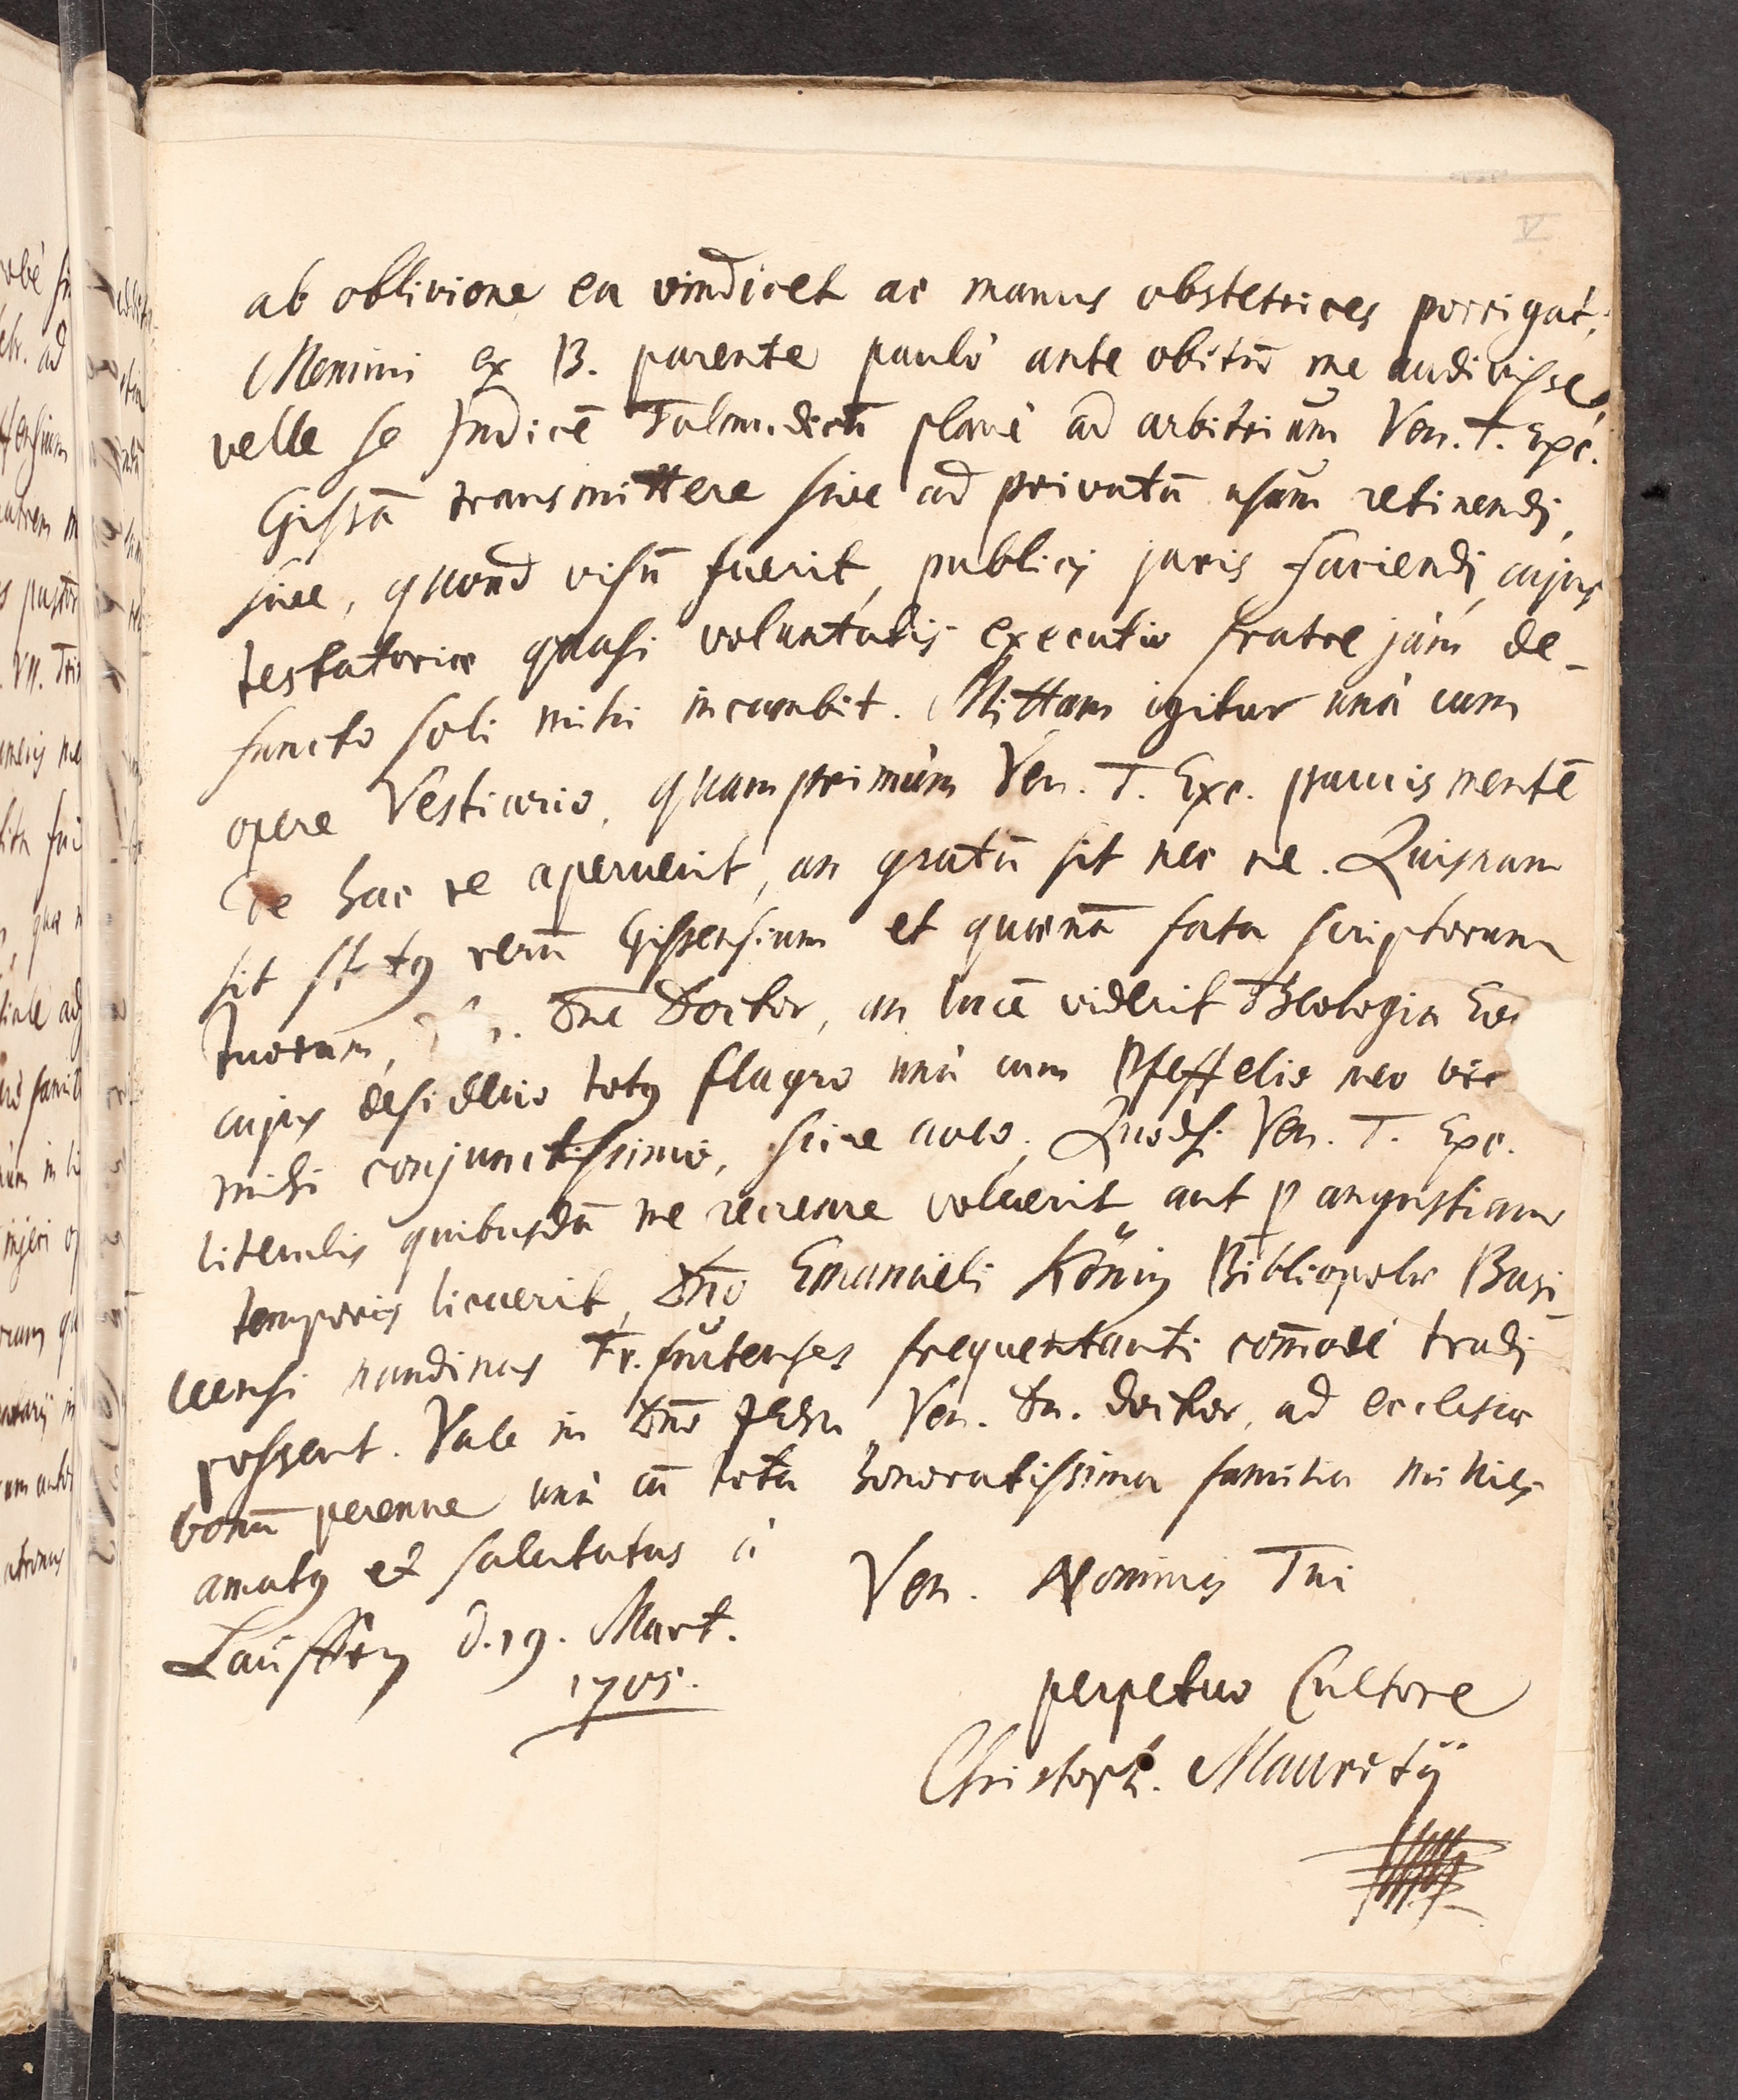 V
ab oblivione ea vindicet ac manus obstetrices porrigat.
Memini ex B. parente paulò ante obitū me audivisse,
velle se Indicē Talmudicū planè ad arbitriŭm Ven. T. Exc.
Gissā transmittere sive ad privatū usŭm retinendj,
sive, quond visū fuerit, publicj juris faciendj, cujus
testatoriæ quasi voluntatis executio fratre jàm de-
functo soli mihi incumbit. Mittam igitur unà cum
opere Vestiario, quamprimùm Ven. T. Exc. paucis mentē
de hac re aperuerit, an gratū sit nec ne. Quisnam
sit status rerū Gissensium et quænā fata scriptorum
tuorum, Dn̄e Doctor, an lucē viderit Theologia
cujus desiderio totus flagro unà cum Pfeffelio meo
mihi conjunctissimo, scire aveo. Quodsi Ven. T. Exc.
literulis quibusdā me recreare voluerit aut p angustiam
temporis licuerit, Dn̄o Emanueli König Bibliopolæ Basi-
leensi nundinas Fr.fŭrtenses frequentanti com̄odè tradj
possent. Vale in Dn̄o JEsu, Ven. Dn. Doctor, ad ecclesiæ
bonū perenne unà cū tota honoratissima familia
amatus et salutatus à
Ven. Nominis Tui
Lauffen d. 19. Mart.
1705.
perpetuo Cultore
Christoph. Mauritÿ